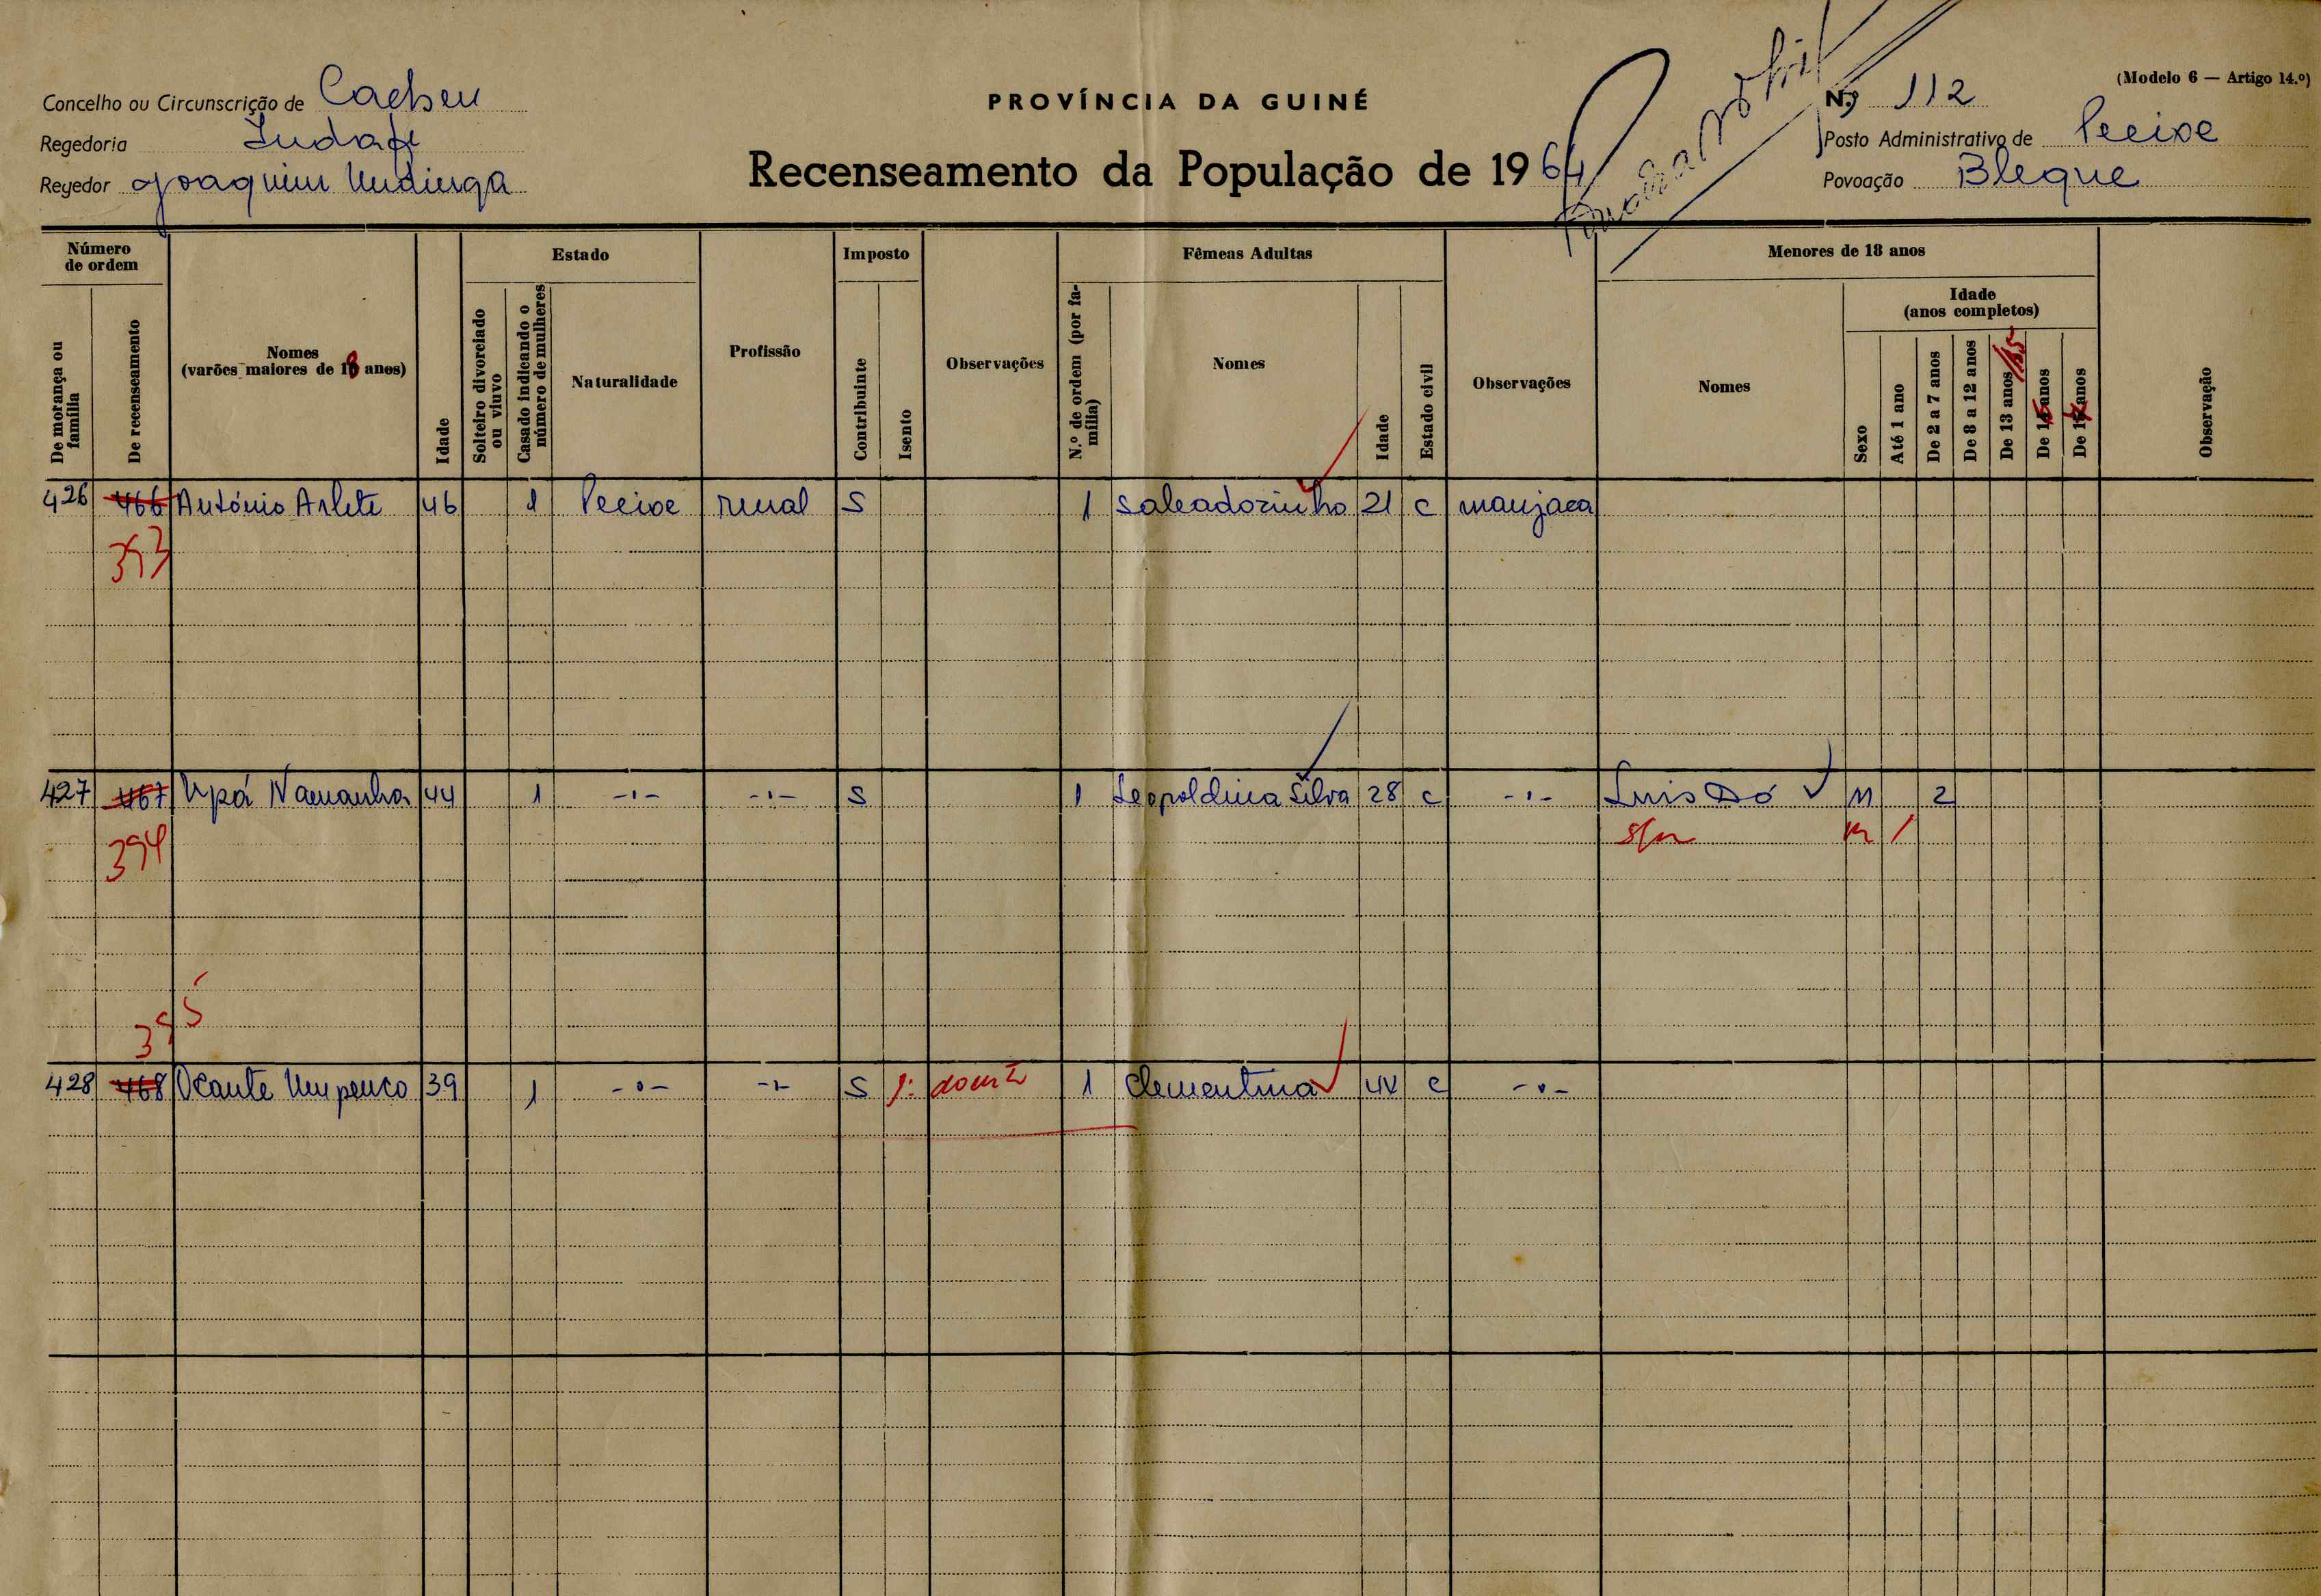 Concelho ou Circunscrição de Cacheu
Regedoria
Regedor Joaquim Undinga
PROVÍNCIA DA GUINÉ
Recenseamento da População de 1964
(Modelo 6 — Artigo 14.º)
N.º 112
Posto Administrativo de Pecixe
Povoação Bleque
Número de ordem
De morança ou família
De recenseamento
Nomes
(varões maiores de 18 anos)
Idade
Estado
Solteiro divorciado ou viuvo
Casado indicando o número de mulheres
Naturalidade
Profissão
Imposto
Contribuinte
Isento
Observações
Fêmeas Adultas
N.º de ordem (por família)
Nomes
Idade
Estado civil
Observações
Menores de 18 anos
Nomes
Idade
(anos completos)
Sexo
Até 1 ano
De 2 a 7 anos
De 8 a 12 anos
De 13 anos/15
De 15 anos
De 17 anos
Observação
426 466 António Arlete 46 1 Pecixe rural S 1 Salvadorinho 21 c manjaca
393
427 467 Upá Namanha 44 1 -"- -"- S 1 Leopoldina Silva 28 c -"- Luis Dó M 2
394 s/n m 1
395
428 468 Ocante Umpenco 39 1 -"- -"- S 1 Clementina c -"-